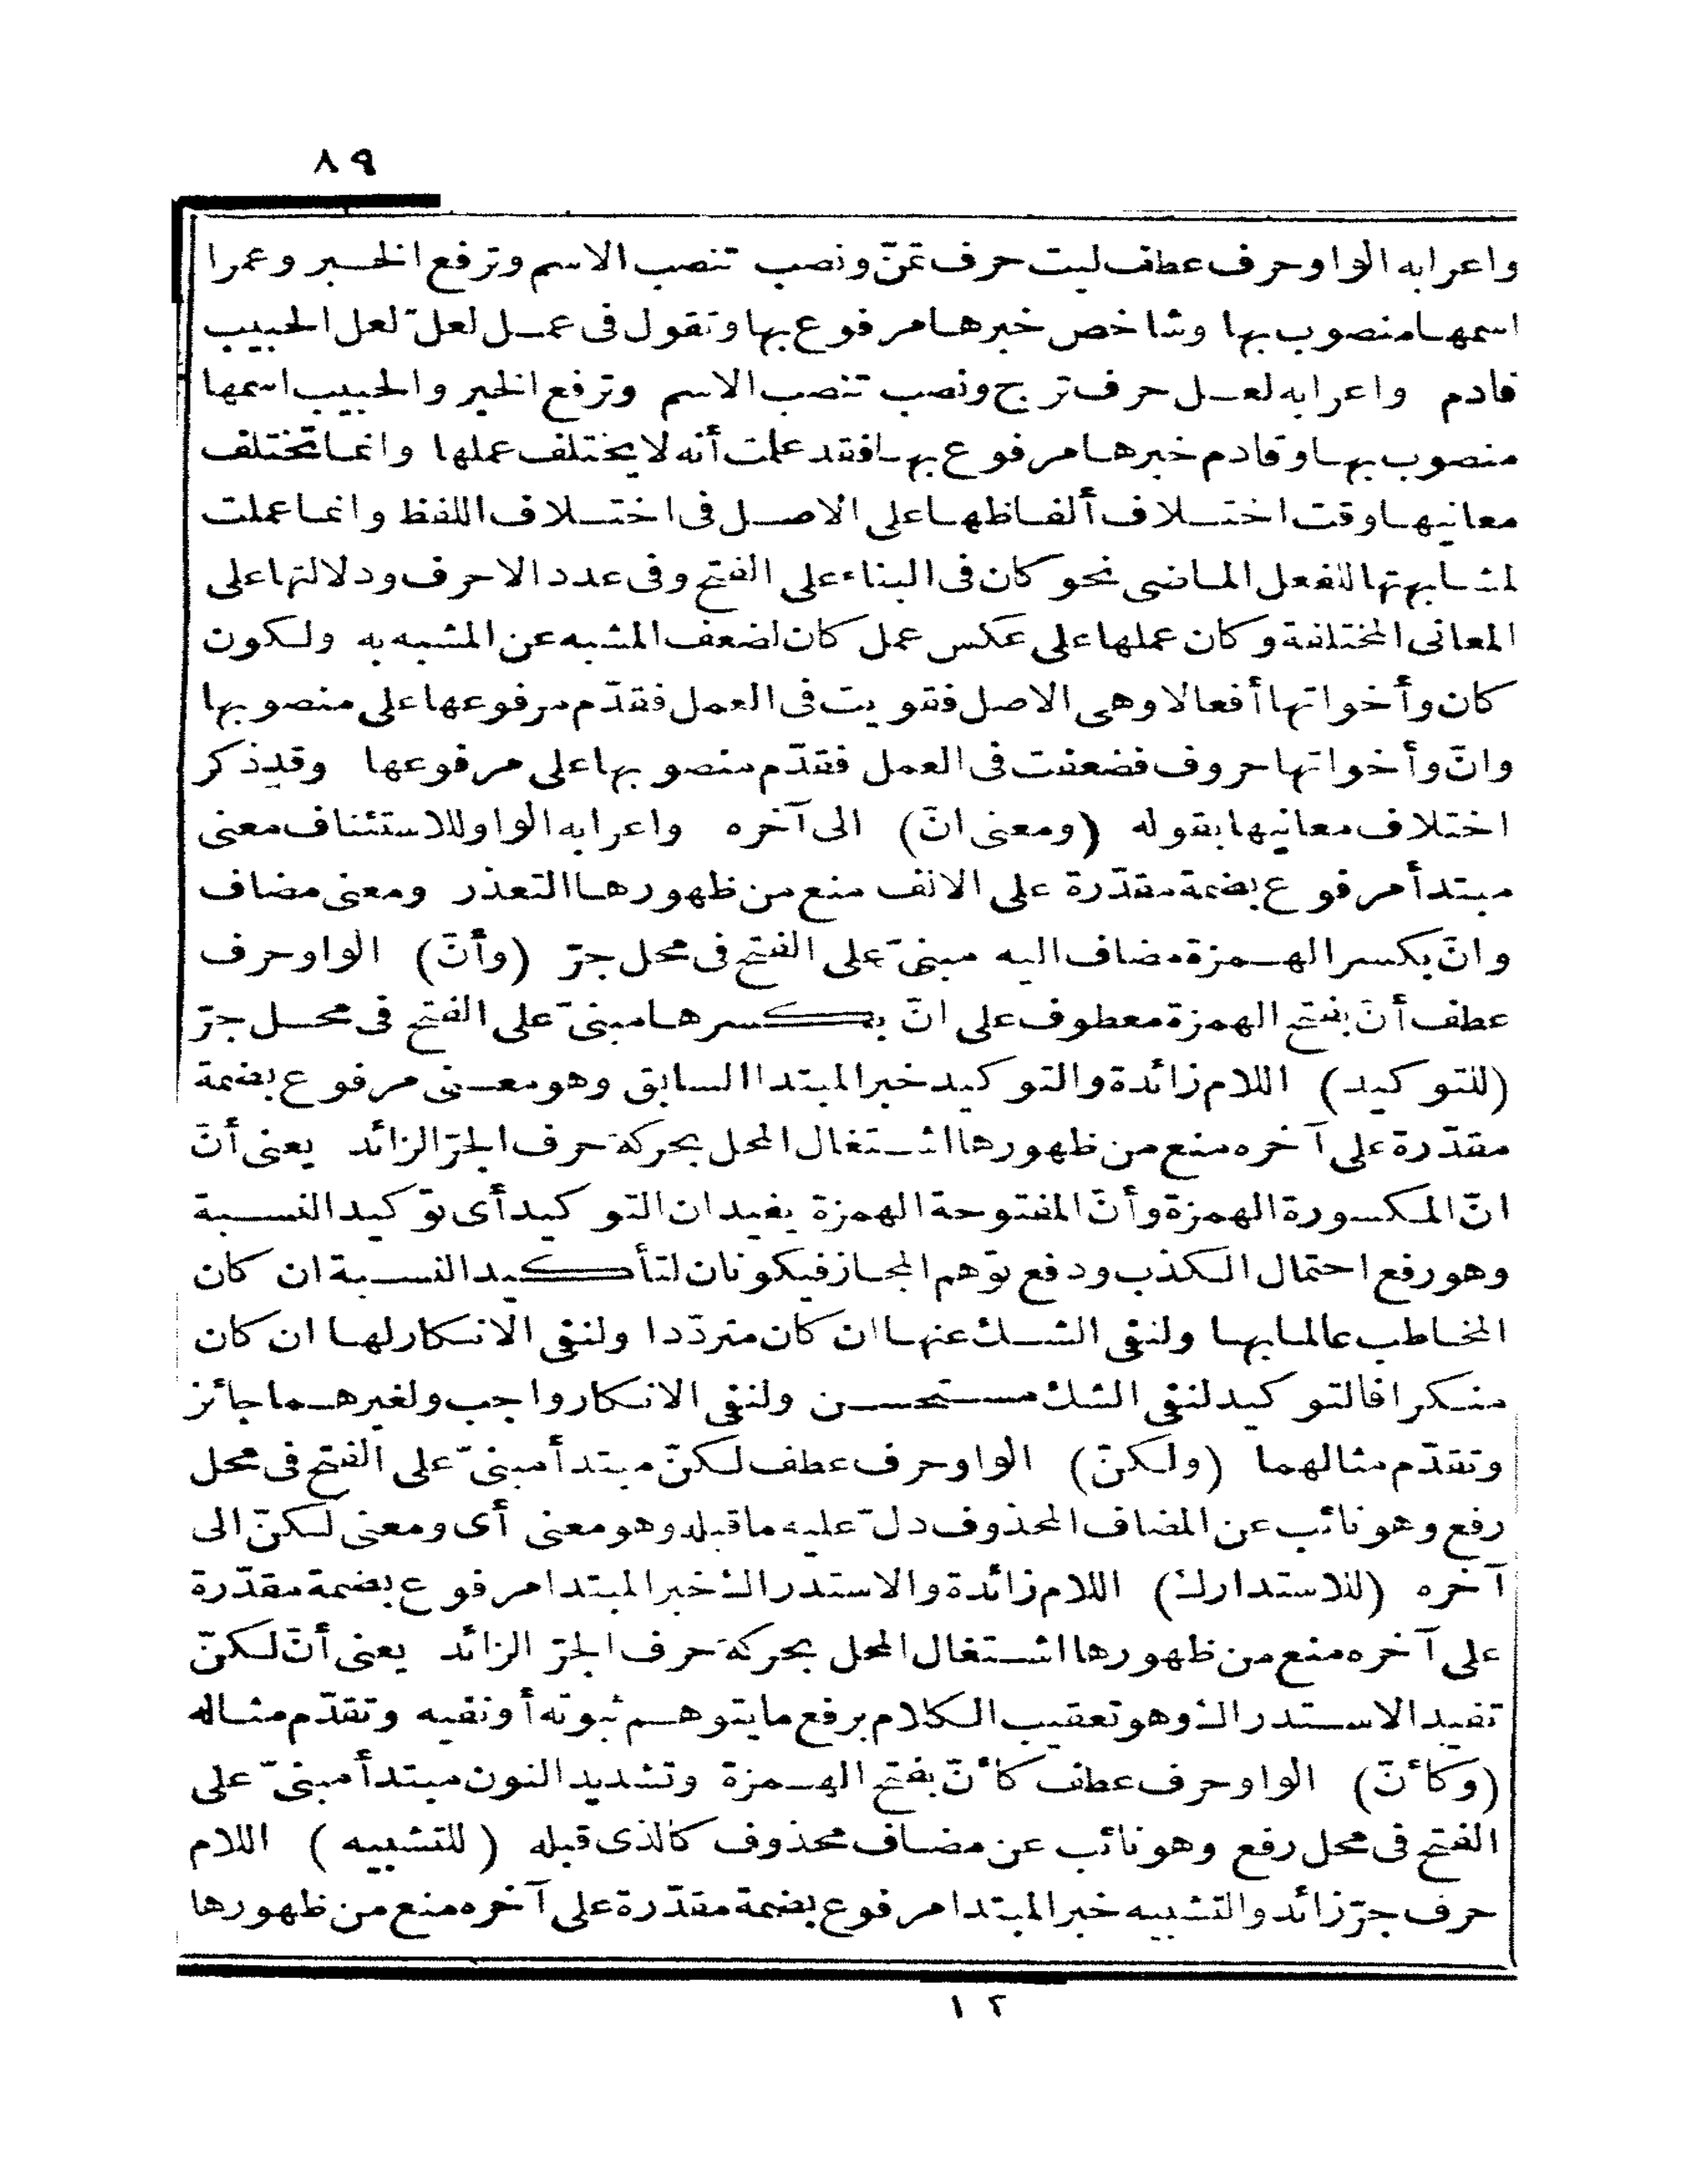 ٨٩
واعرابه الواو حرف عطف ليت حرف تمنّ ونصب تنصب الاسم وترفع الخبر وعمرا
اسمها منصوب بها وشاخص خبرها مرفوع بها وتقول فى عمل لعلّ لعل الحبيب
قادم واعرابه لعل حرف ترج ونصب تنصب الاسم وترفع الخبر والحبيب اسمها
منصوب بها وقادم خبرها مرفوع بها فقد علمت أنه لا يختلف عملها وانما تختلف
معانيها وقت اختلاف ألفاظها على الاصل فى اختلاف اللفظ وانما عملت
لمشابهتها للفعل الماضى نحو كان فى البناء على الفتح وفى عدد الاحرف ودلالتها على
المعانى المختلفة وكان عملها على عكس عمل كان لضعف المشبه عن المشبه به ولكون
كان وأخواتها أفعالا وهى الاصل فقويت فى العمل فقدّم مرفوعها على منصوبها
وانّ وأخواتها حروف فضعفت فى العمل فقدّم منصوبها على مرفوعها وقد ذكر
اختلاف معانيها بقوله (ومعنى انّ) الى آخره واعرابه الواو للاستئناف معنى
مبتدأ مرفوع بضمة مقدّرة على الالف منع من ظهورها التعذر ومعنى مضاف
وانّ بكسر الهمزة مضاف اليه مبنىّ على الفتح فى محل جرّ (وأنّ) الواو حرف
عطف أنّ بفتح الهمزة معطوف على انّ بكسرها مبنىّ على الفتح فى محل جرّ
(للتوكيد) اللام زائدة والتوكيد خبر المبتدا السابق وهو معنى مرفوع بضمة
مقدّرة على آخره منع من ظهورها اشتغال المحل بحركة حرف الجرّ الزائد يعنى أنّ
انّ المكسورة الهمزة وأنّ المفتوحة الهمزة يفيدان التوكيد أى توكيد النسبة
وهو رفع احتمال الكذب ودفع توّهم المجاز فيكونان لتأكيد النسبة ان كان
المخاطب عالما بها ولنفى الشك عنها ان كان متردّدا ولنفى الانكار لها ان كان
منكرا فالتوكيد لنفى الشك مستحسن ولنفى الانكار واجب ولغيرهما جائز
وتقدّم مثالهما (ولكنّ) الواو حرف عطف لكنّ مبتدأ مبنىّ على الفتح فى محل
رفع وهو نائب عن المضاف المحذوف دلّ عليه ما قبله وهو معنى أى ومعنى لكنّ الى
آخره (للاستدارك) اللام زائدة والاستدراك خبر المبتدا مرفوع بضمة مقدّرة
على آخره منع من ظهورها اشتغال المحل بحركة حرف الجرّ الزائد يعنى أنّ لكنّ
تفيد الاستدراك وهو تعقيب الكلام برفع ما يتوهم ثبوته أو نفيه وتقدّم مثاله
(وكأنّ) الواو حرف عطف كأنّ بفتح الهمزة وتشديد النون مبتدأ مبنىّ على
الفتح فى محل رفع وهو نائب عن مضاف محذوف كالذى قبله (للتشبيه) اللام
حرف جرّ زائد والتشبيه خبر المبتدا مرفوع بضمة مقدّرة على آخره منع من ظهورها
١٢